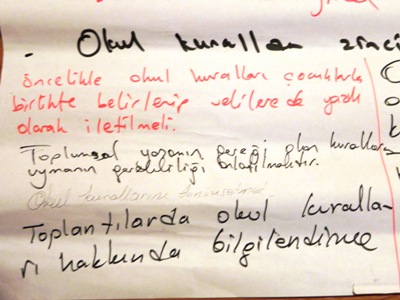 . Okul kuralları
öncelikle okul kuralları çocuklarla
birlikte belirlenip velilere de yazılı
olarak iletilmeli.
Toplumsal yaşamın gereği olan kurallara
uymanın gerekliliği anlatılmalıdır.
Okul kurallarını
Toplantılarda okul kuralla-
rı hakkında bilgilendirme